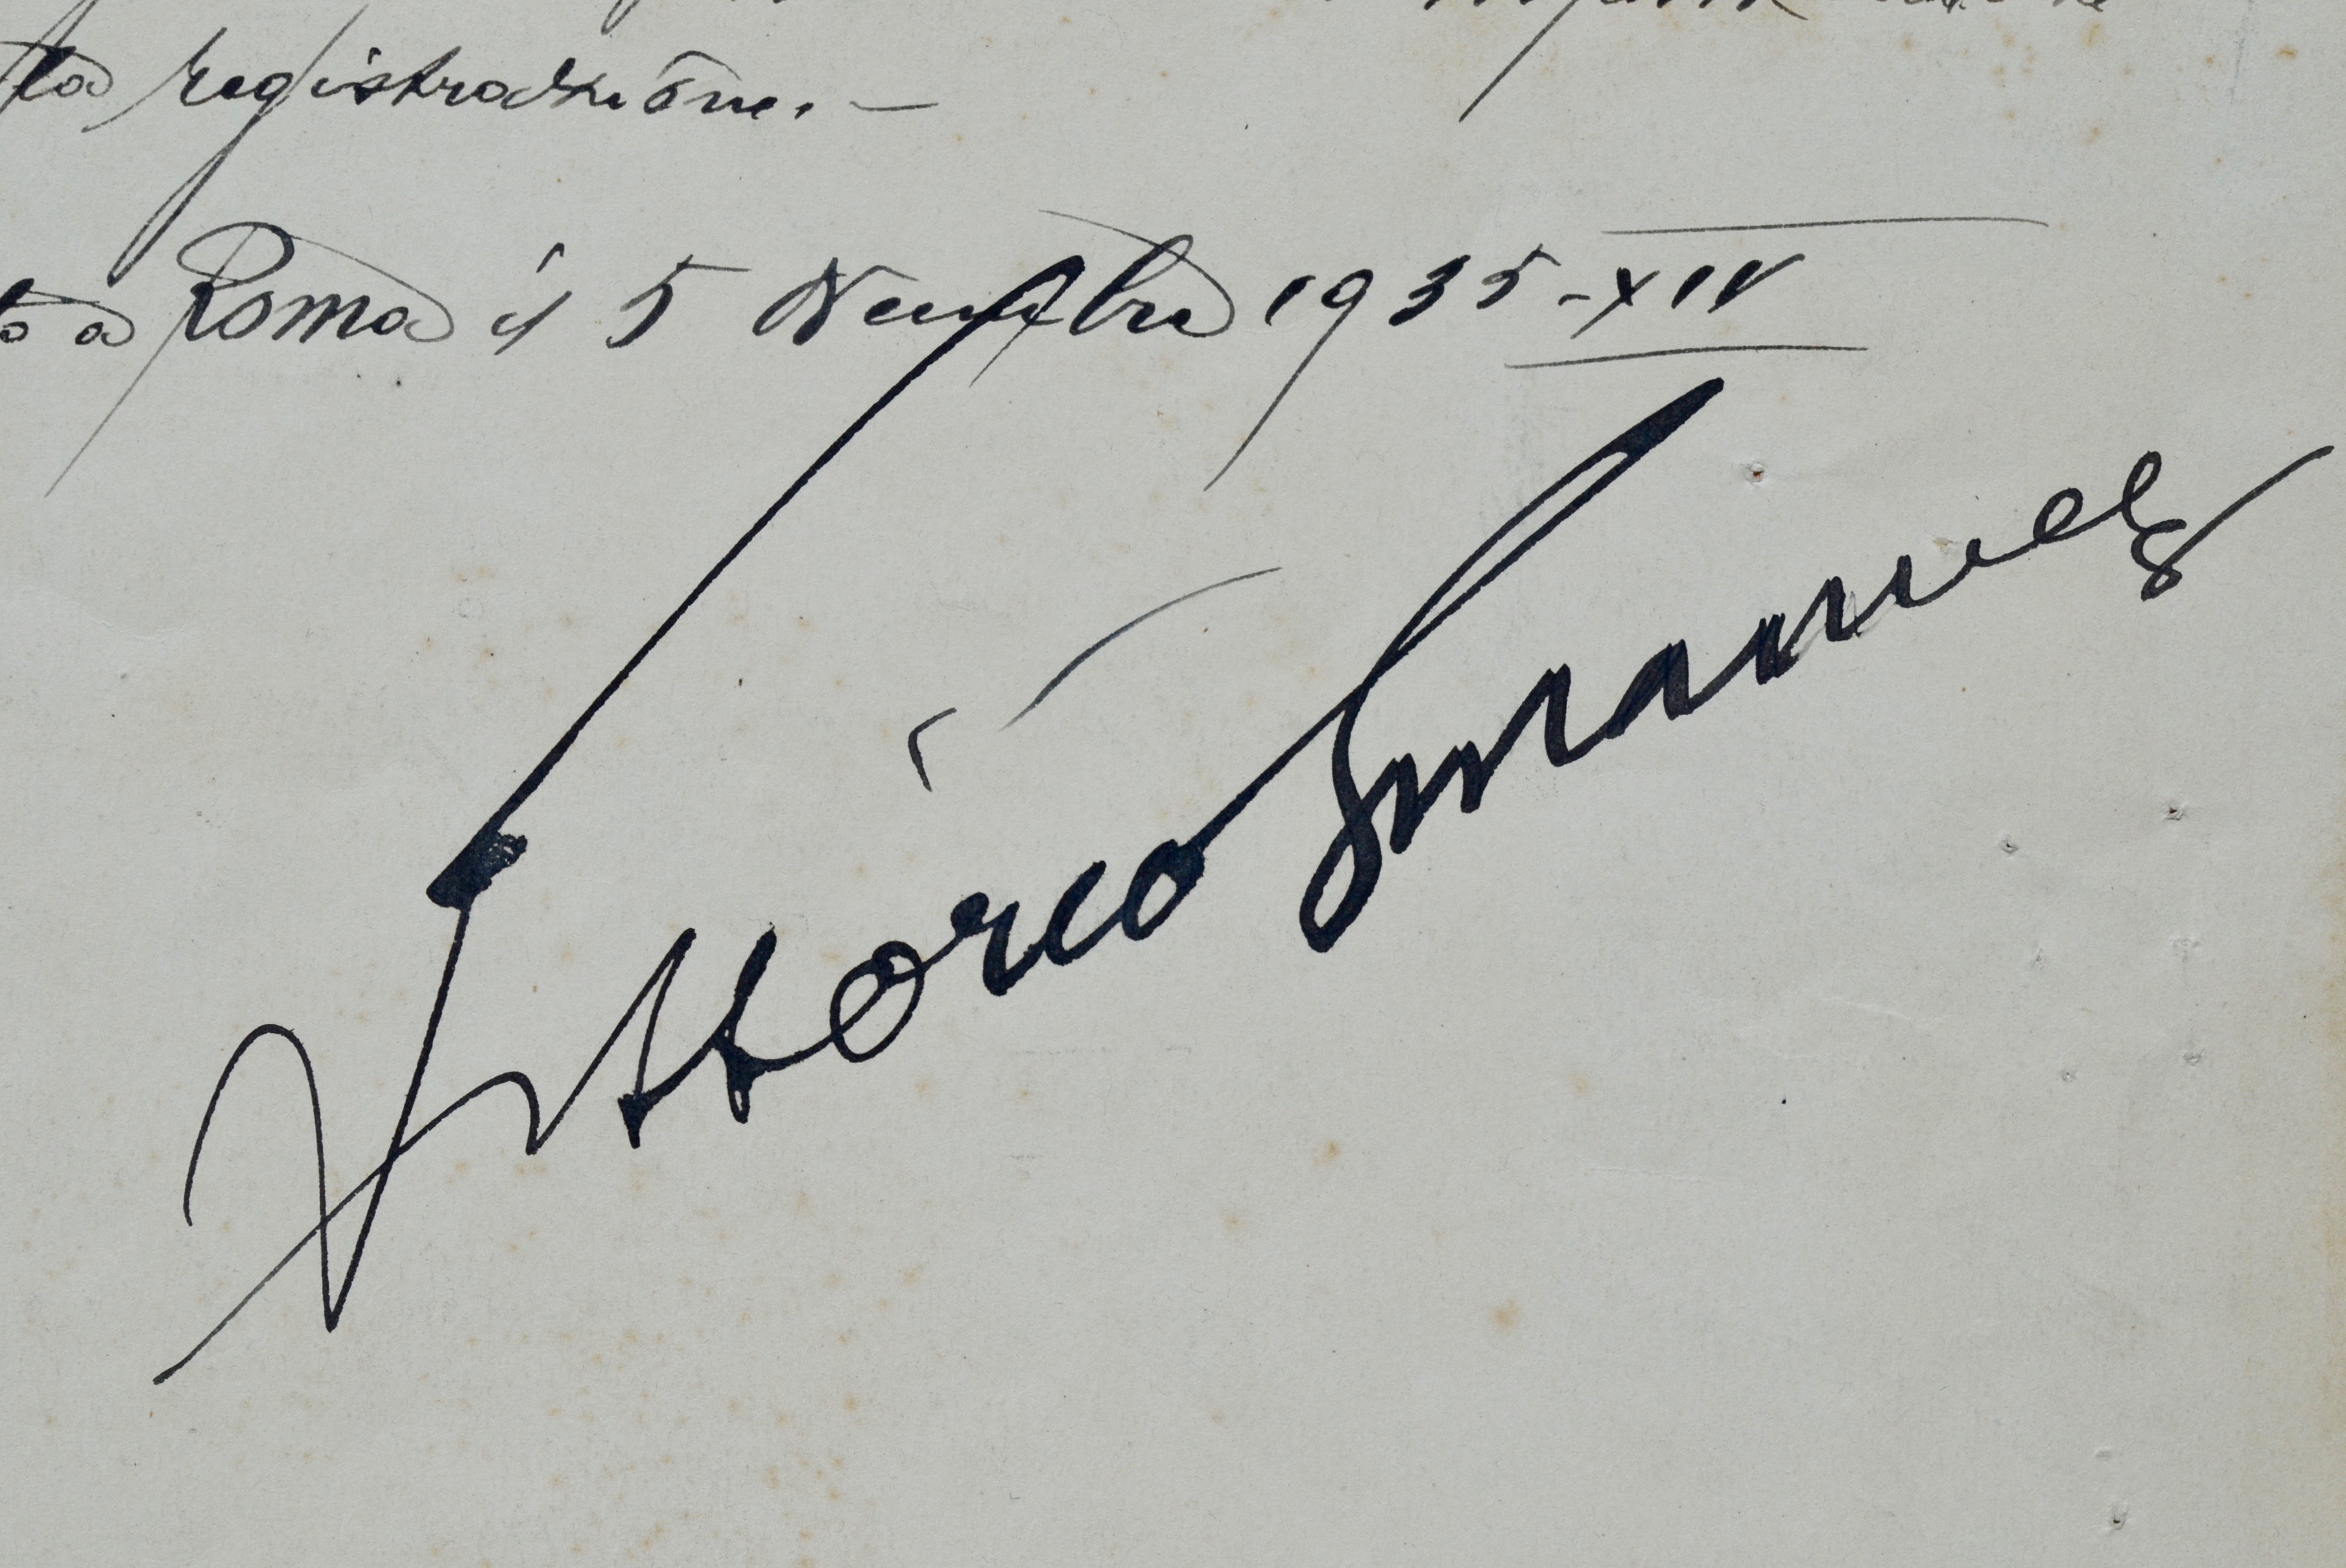 la registrazione. —
a Roma il 5 Novembre 1935-XIV
Vittorio Emanuele